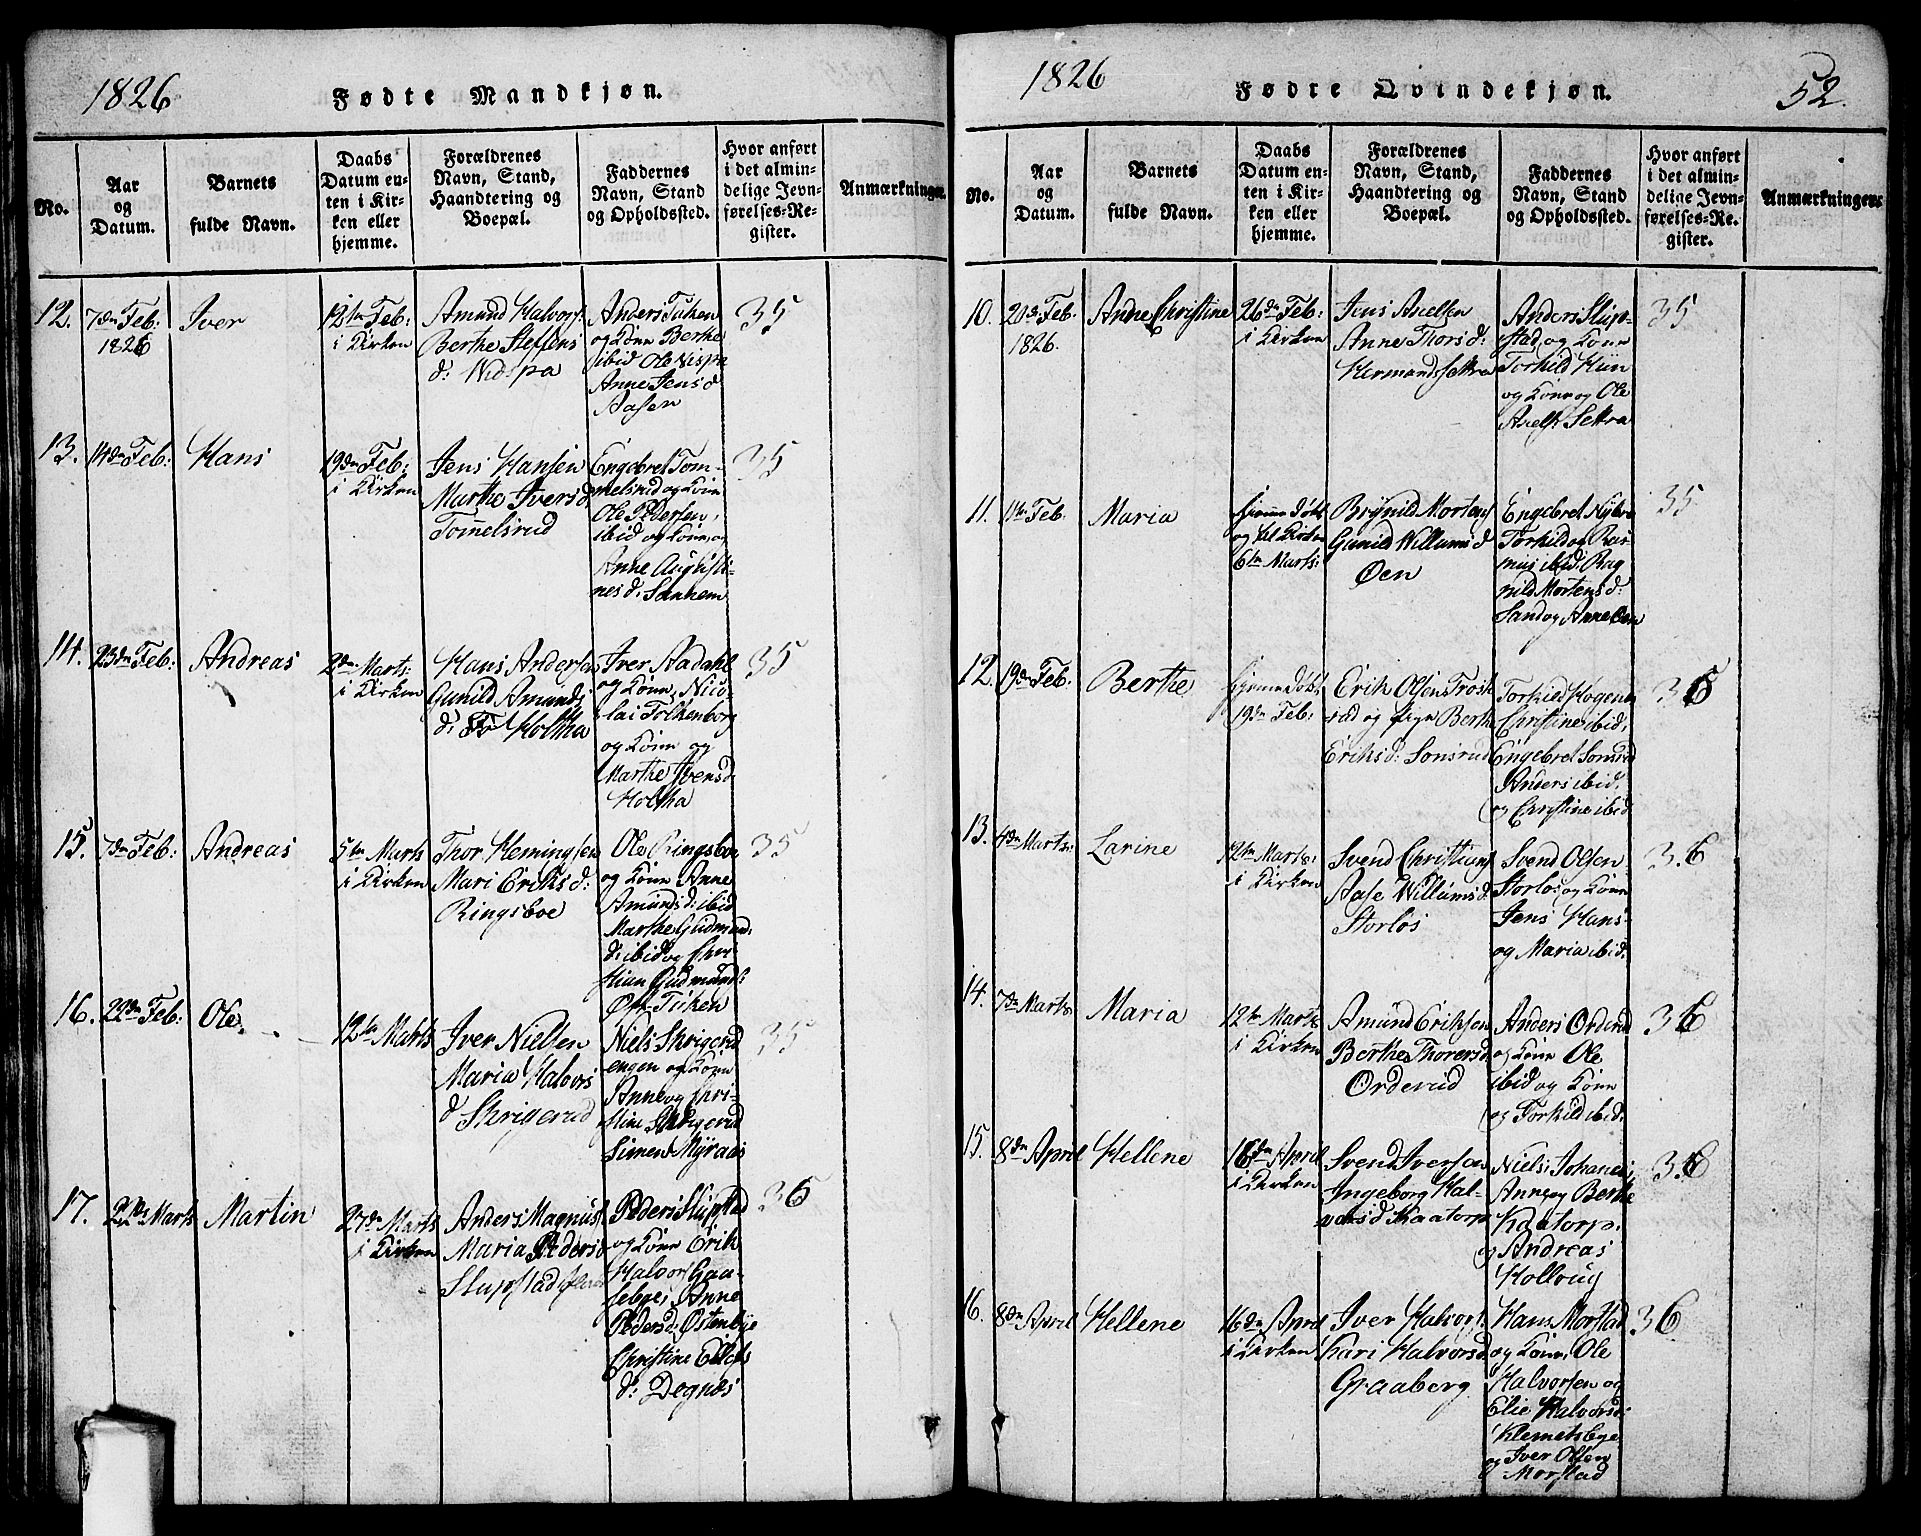 1826
Fødte Mandkjøn.
No.
Aar
og
Datum.
Barnets
fulde Navn.
Daabs
Datum en-
ten i Kir-
ken eller
hjemme.
Forældrenes
Navn, Stand,
Haandtering og
Boepæl.
Faddernes
Navn, Stand
og Opholdssted.
Hvor anført
i det almin-
delige Jevn-
førelses-Re-
gister.
Anmærkninger.
12.
7de Feb:
1826
Iver
12te Feb:
i Kirken
Amund Halvors
Berthe Steffens
d: Nidspa
Anders
og Kone Berthe
ibid Ole Nespa
Anne Jensd
Aasen
35
13.
14de Feb:
Hans
19de Feb:
i Kirken
Jens Hansen
Marthe Iversd
Tommelsrud
Engebret Tom-
melsrud og Kone
Ole Pedersen,
ibid og Kone, og
Anne Augusti-
nesd: Sanhem
35
14.
23de Feb:
Andreas
2den Marts:
i Kirken
Hans Andersen
Gunild Amunds
d: Holtha
Iver Aadahl
og Kone, Nico-
lai Folkenborg
og Kone og
Marthe Iversd.
Holtha
35
15.
7de Feb:
Andreas
5te Marts
i Kirken
Thor Hemingsen
Mari Eriksd:
Ringsboe
Ole Ringsboe
og Kone Anne
Amundsd: ibid
Marthe Gudmund:
d: ibid og Chri-
stian Gudmunds:
35
16.
22de Feb:
Ole
12te Marts
Iver Nielsen
Maria Halvors
d Skrigerud
Niels Skrigerud
engen og Kone
Anne og Chri-
stine Skrigerud
Simen Myraas
35
17.
Marts
Martin
27de Marts
i Kirken
Anders Magnus
Maria Pedersd
Slupstad
Peder Slupstad
og Kone Erik
Halvors Gaa-
sebye, Anne
Pedersd, Østenbye
Christine Eilefs
d: Degnæs
36
1826
Fødte Qvindekjøn.
52.
No.
Aar
og
Datum.
Barnets
fulde Navn.
Daabs
Datum en-
ten i Kir-
ken eller
hjemme.
Forældrenes
Navn, Stand,
Haandtering og
Boepæl.
Faddernes
Navn, Stand
og Opholdssted.
Hvor anført
i det almin-
delige Jevn-
førelses-Re-
gister.
Anmærkninger.
10.
20de Feb.
1826.
Anne Christine
26de Feb:
i Kirken
Jens Axelsen
Anne Thorsd:
Hermandssettra
Anders Slup-
stad og Kone
Torkild Kiin
og Kone og Ole
Axels Settra
35
11.
11te Feb.
Maria
hjemme døbt
og til Kirken
6te Marts:
Brynild Mortens
Gunild Willumsd
Øen
Engebret Nybro
Torkild og Ras-
mus ibid; Rag
nild Mortensd:
Sand og Anne Øen
35
12.
19de Feb.
Berthe
hjemme døbt
19de Feb:
Erik Olsen Trosk
rud og Pige Berthe
Eriksd: Sonsrud
Torkild Hogene
Christine ibid;
Engebret Sonsrud
Anders ibid,
og Christine ibid
36
13.
4de Marts:
Larine
12te Marts:
i Kirken
Svend Christians
Aase Willumsd:
Storløs
Svend Olsen
Storløs og Kone
Jens Hans-
og Maria ibid:
3.6
14.
7de Marts
Maria
12te Marts
i Kirken
Amund Eriksen
Berthe Thorersd
Orderud
Anders Orderud
og Kone Ole
ibid og Kone
og Torkild ibid:
36
15.
8de April
Hellene
16de April
i Kirken
Svend Iversen
Ingeborg Hal-
vorsd Kaatorp
Niels: Johanes;
Anne og Berthe
Kaatorp:
og Andreas
Hollvug
3.6
16.
8de April
Hellene
16de April
i Kirken
Iver Halvors.
Kari Halvorsd
Graaberg
Hans Morstad
og Kone, Ole
Halvorsen og
Elie Halvorsd:
Klemetsbye
og Iver Olsen
Morstad
36